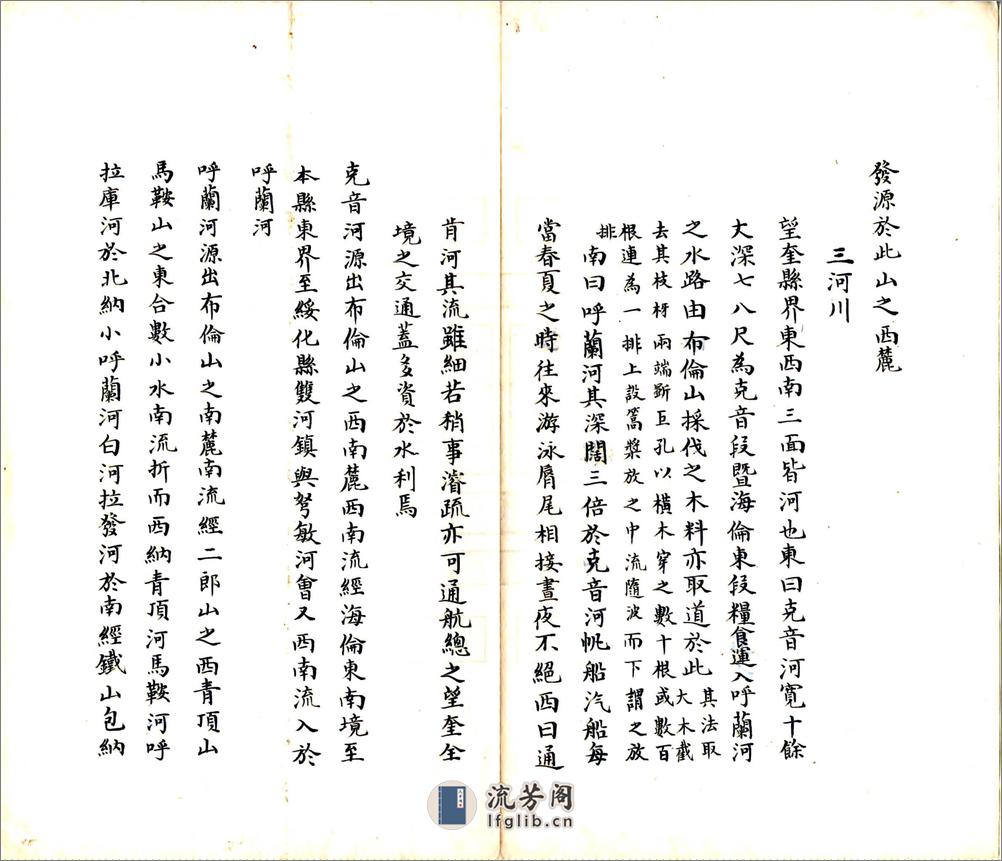 發源於此山之西麓
三河川
望奎縣界東西南三面皆河也東曰克音河寬十餘
大深七八尺為克音段暨海倫東段糧食運入呼蘭河
之水路由布倫山採伐之木料亦取道於此其法取大木截
去其枝枒兩端斲巨孔以橫木穿之數十根或數百
根連為一排上設篙槳放之中流隨波而下謂之放
排
南曰呼蘭河其深闊三倍於克音河帆船汽船每
當春夏之時往來游泳脣尾相接晝夜不絕西曰通
肯河其流雖細若稍事濬疏亦可通航總之望奎全
境之交通蓋多資於水利焉
克音河源出布倫山之西南麓西南流經海倫東南境至
本縣東界至綏化縣雙河鎮與弩敏河會又西南流入於
呼蘭河
呼蘭河源出布倫山之南麓南流經二郎山之西青頂山
馬鞍山之東合數小水南流折而西納青頂河馬鞍河呼
拉庫河於北納小呼蘭河白河拉發河於南經鐵山包納
流芳阁
lfglib.cn